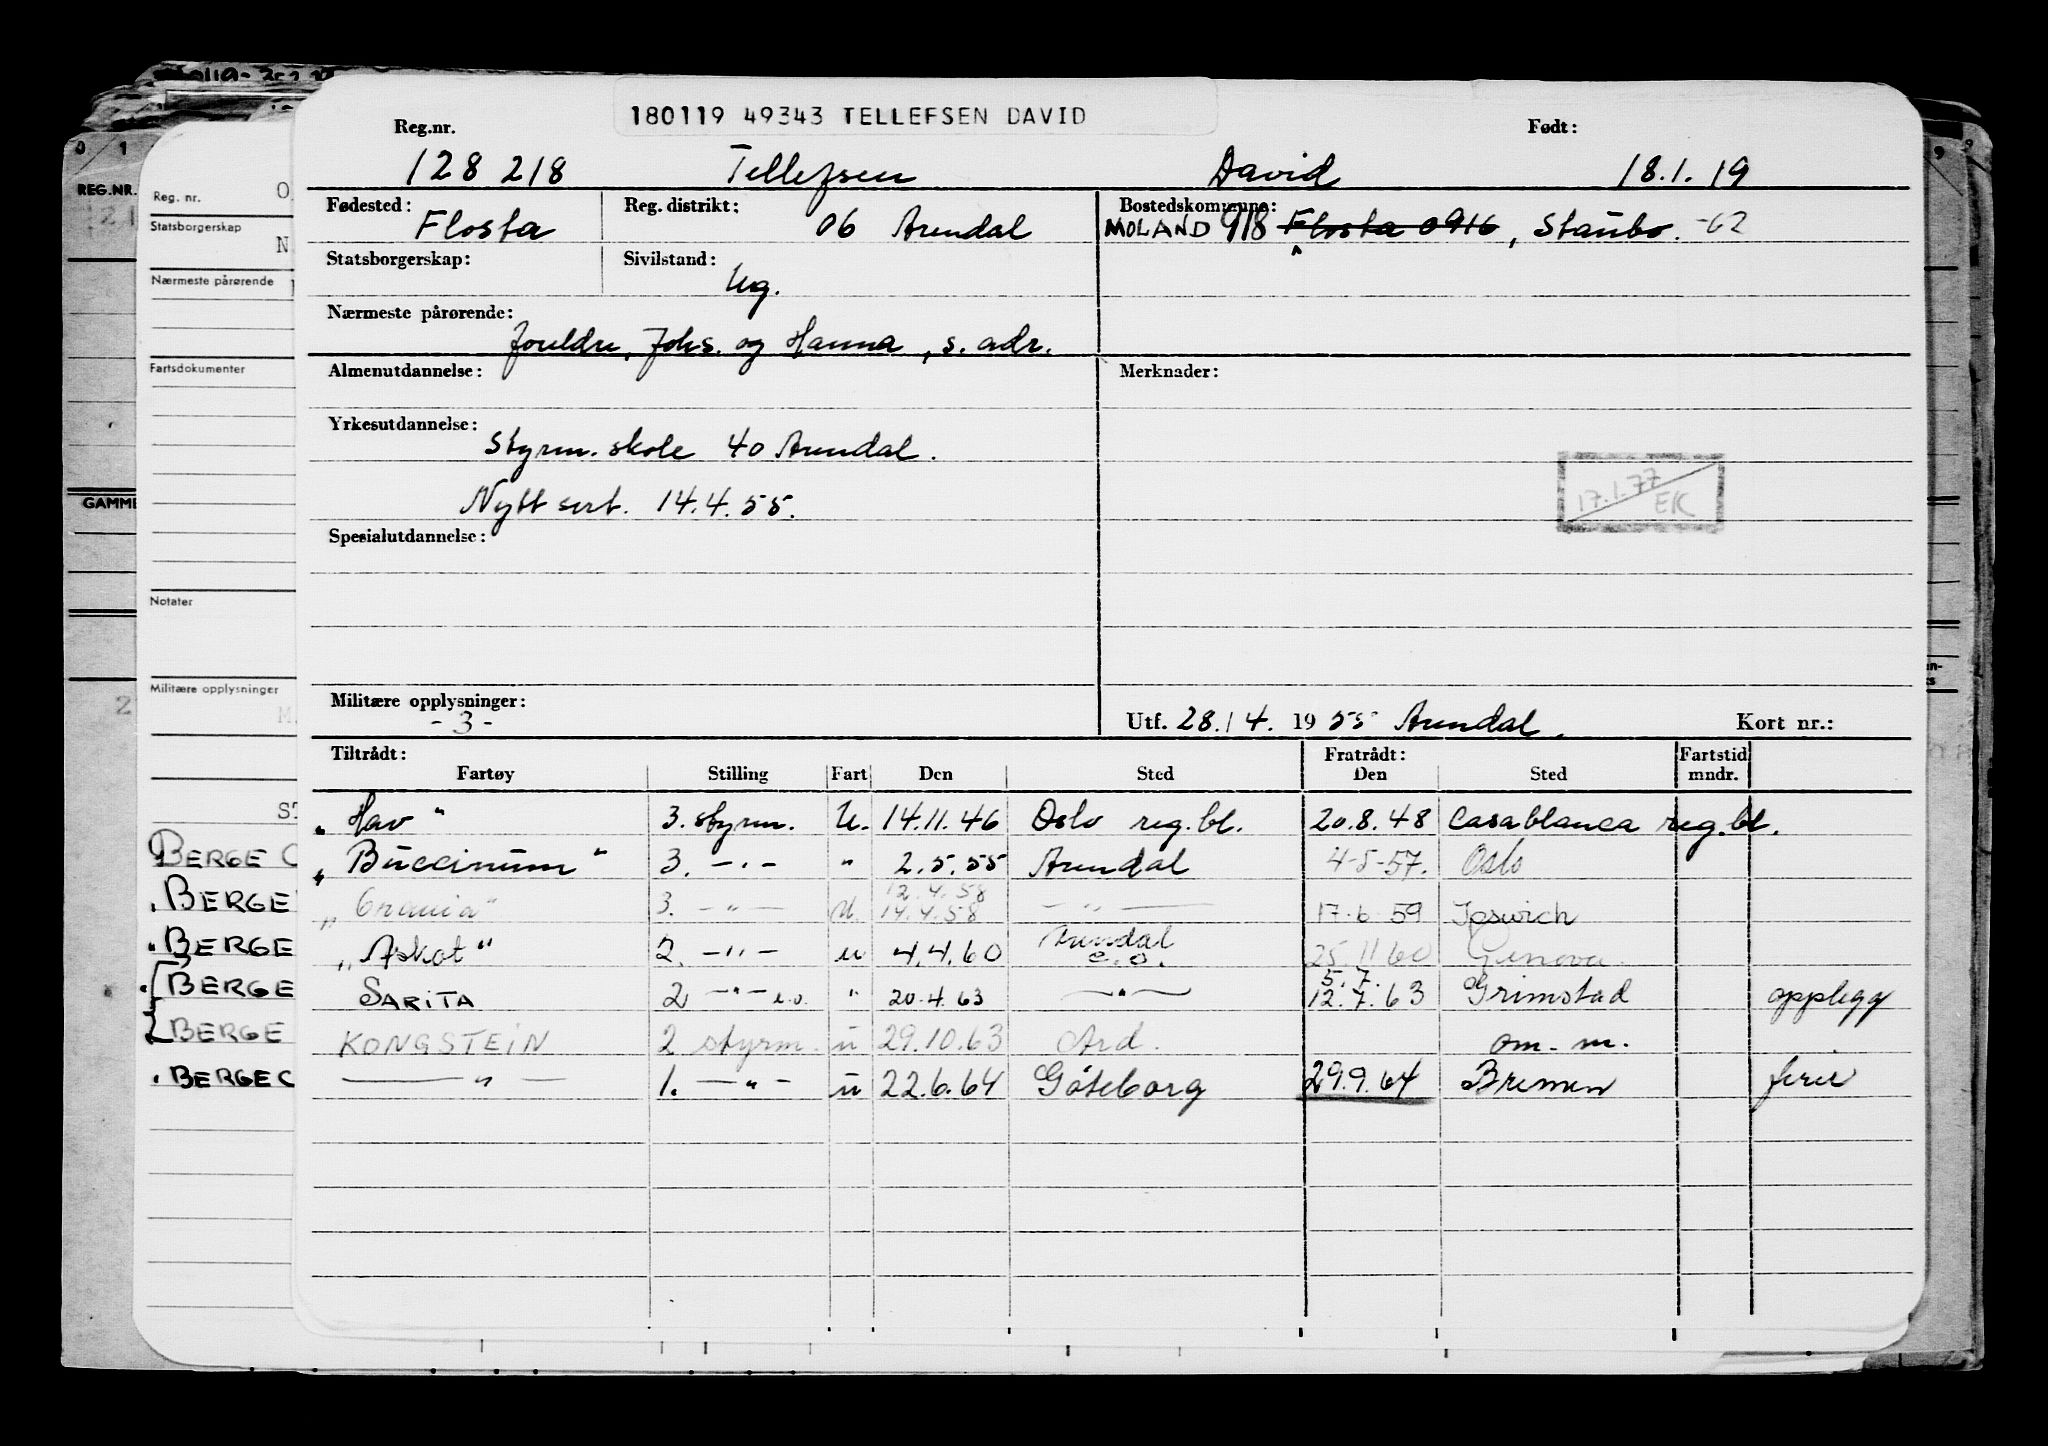 180119 49343 TELLEFSEN DAVID
Reg.nr. Født:
128 218 Tellefsen David 18.1.19
Fødested: Reg. distrikt: Bostedskommune:
Flosta 06 Arendal MOLAND 918 Flosta 0916, Staubo. -62
Statsborgerskap: Sivilstand:
Ug.
Nærmeste pårørende:
foreldre, Johs. og Hanna, s. adr.
Almenutdannelse: Merknader:
Yrkesutdannelse:
Styrm. skole 40 Arendal.
17.1.77
EK
Nytt sert. 14.4.55.
Spesialutdannelse:
Militære opplysninger:
- 3 -
Utf. 28./4. 1955 Arendal. Kort nr.:
Tiltrådt: Fratrådt: Fartstid
Fartøy Stilling Fart Den Sted Den Sted mndr.
"Hav" 3. styrm. U. 14.11.46 Oslo reg.bl. 20.8.48 Casablanca reg.bl.
"Buccinum" 3. -"- " 2.5.55 Arendal 4-5-57. Oslo
12.4.58
3. -"- U. 14.4.58 -"- 17.6.59 Ipswich
Arendal
"Askot" 2. -"- u 4.4.60 e.o. 25.11.60 Genova.
5.7.
SARITA 2 -"- e.o. " 20.4.63 -"- 12.7.63 Grimstad opplegg
KONGSTEIN 2 styrm. u 29.10.63 Ard. om. m.
-"- 1. -"- u 22.6.64 Göteborg 29.9.64 Bremen ferie
Reg. nr. O
Statsborgerskap
N
Nærmeste pårørende
Fartsdokumenter
Notater
Militære opplysninger
M
ST
BERGE C
BERGE
BERGE
BERGE
BERGE
BERGE C
0 1
REG.NR.
GAMME
2